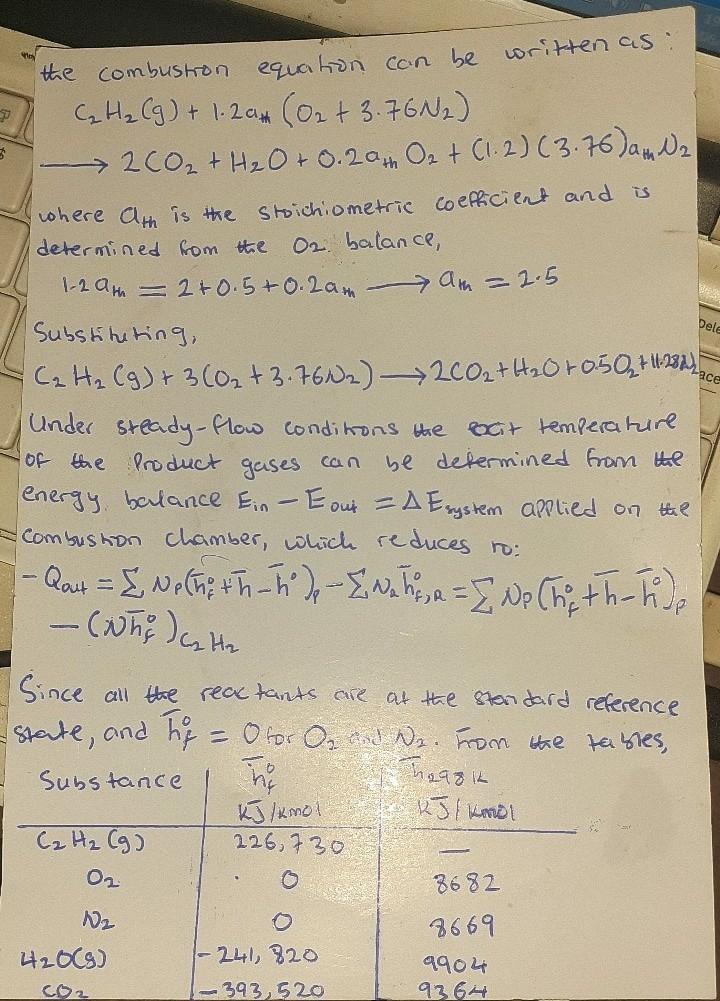 the combustion equation can be written as:
C₂H₂(g) + 1.2aₜₕ (O₂ + 3.76N₂)
→ 2CO₂ + H₂O + 0.2aₜₕ O₂ + (1.2)(3.76)aₜₕ N₂
where aₜₕ is the stoichiometric coefficient and is
determined from the O₂ balance,
1.2aₜₕ = 2+0.5+0.2aₜₕ → aₜₕ = 2.5
Substituting,
C₂H₂(g) + 3(O₂ + 3.76N₂) → 2CO₂ + H₂O + 0.5O₂ + 11.28N₂
Under steady-flow conditions the exit temperature
of the product gases can be determined from the
energy balance Ein − Eout = ΔEsystem applied on the
combustion chamber, which reduces to:
−Qout = ∑ Np(h̄°f + h̄ − h̄°)p − ∑ NR h̄°f,R = ∑ Np(h̄°f + h̄ − h̄°)p
− (Nh̄°f)C₂H₂
Since all the reactants are at the standard reference
state, and h̄°f = 0 for O₂ and N₂. From the tables,
Substance h̄°f h̄298K
kJ/kmol kJ/kmol
C₂H₂(g) 226,730 —
O₂ 0 8682
N₂ 0 8669
H₂O(g) -241,820 9904
CO₂ -393,520 9364
Dele
ace